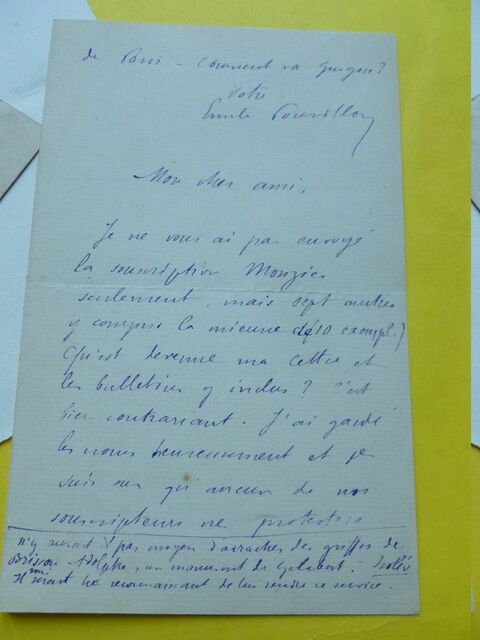 de Paris - Comment va Gorgon?
Votre
Emile Pouvillon
Mon cher ami,
Je ne vous ai pas envoyé
la souscription Monziès
seulement, mais sept autres
y compris la mienne (10 exempl.)
Qu'est devenue ma lettre et
les bulletins y inclus? C'est
bien contrariant. J'ai gardé
les noms heureusement et je
suis sûr qu'aucun de nos
souscripteurs ne protestera
n'y aurait il pas moyen d'arracher des griffes de
Brisson Adolphe, un manuscrit de Gélabert: Isolés
Il vous serait bé reconnaissant de lui rendre ce service.